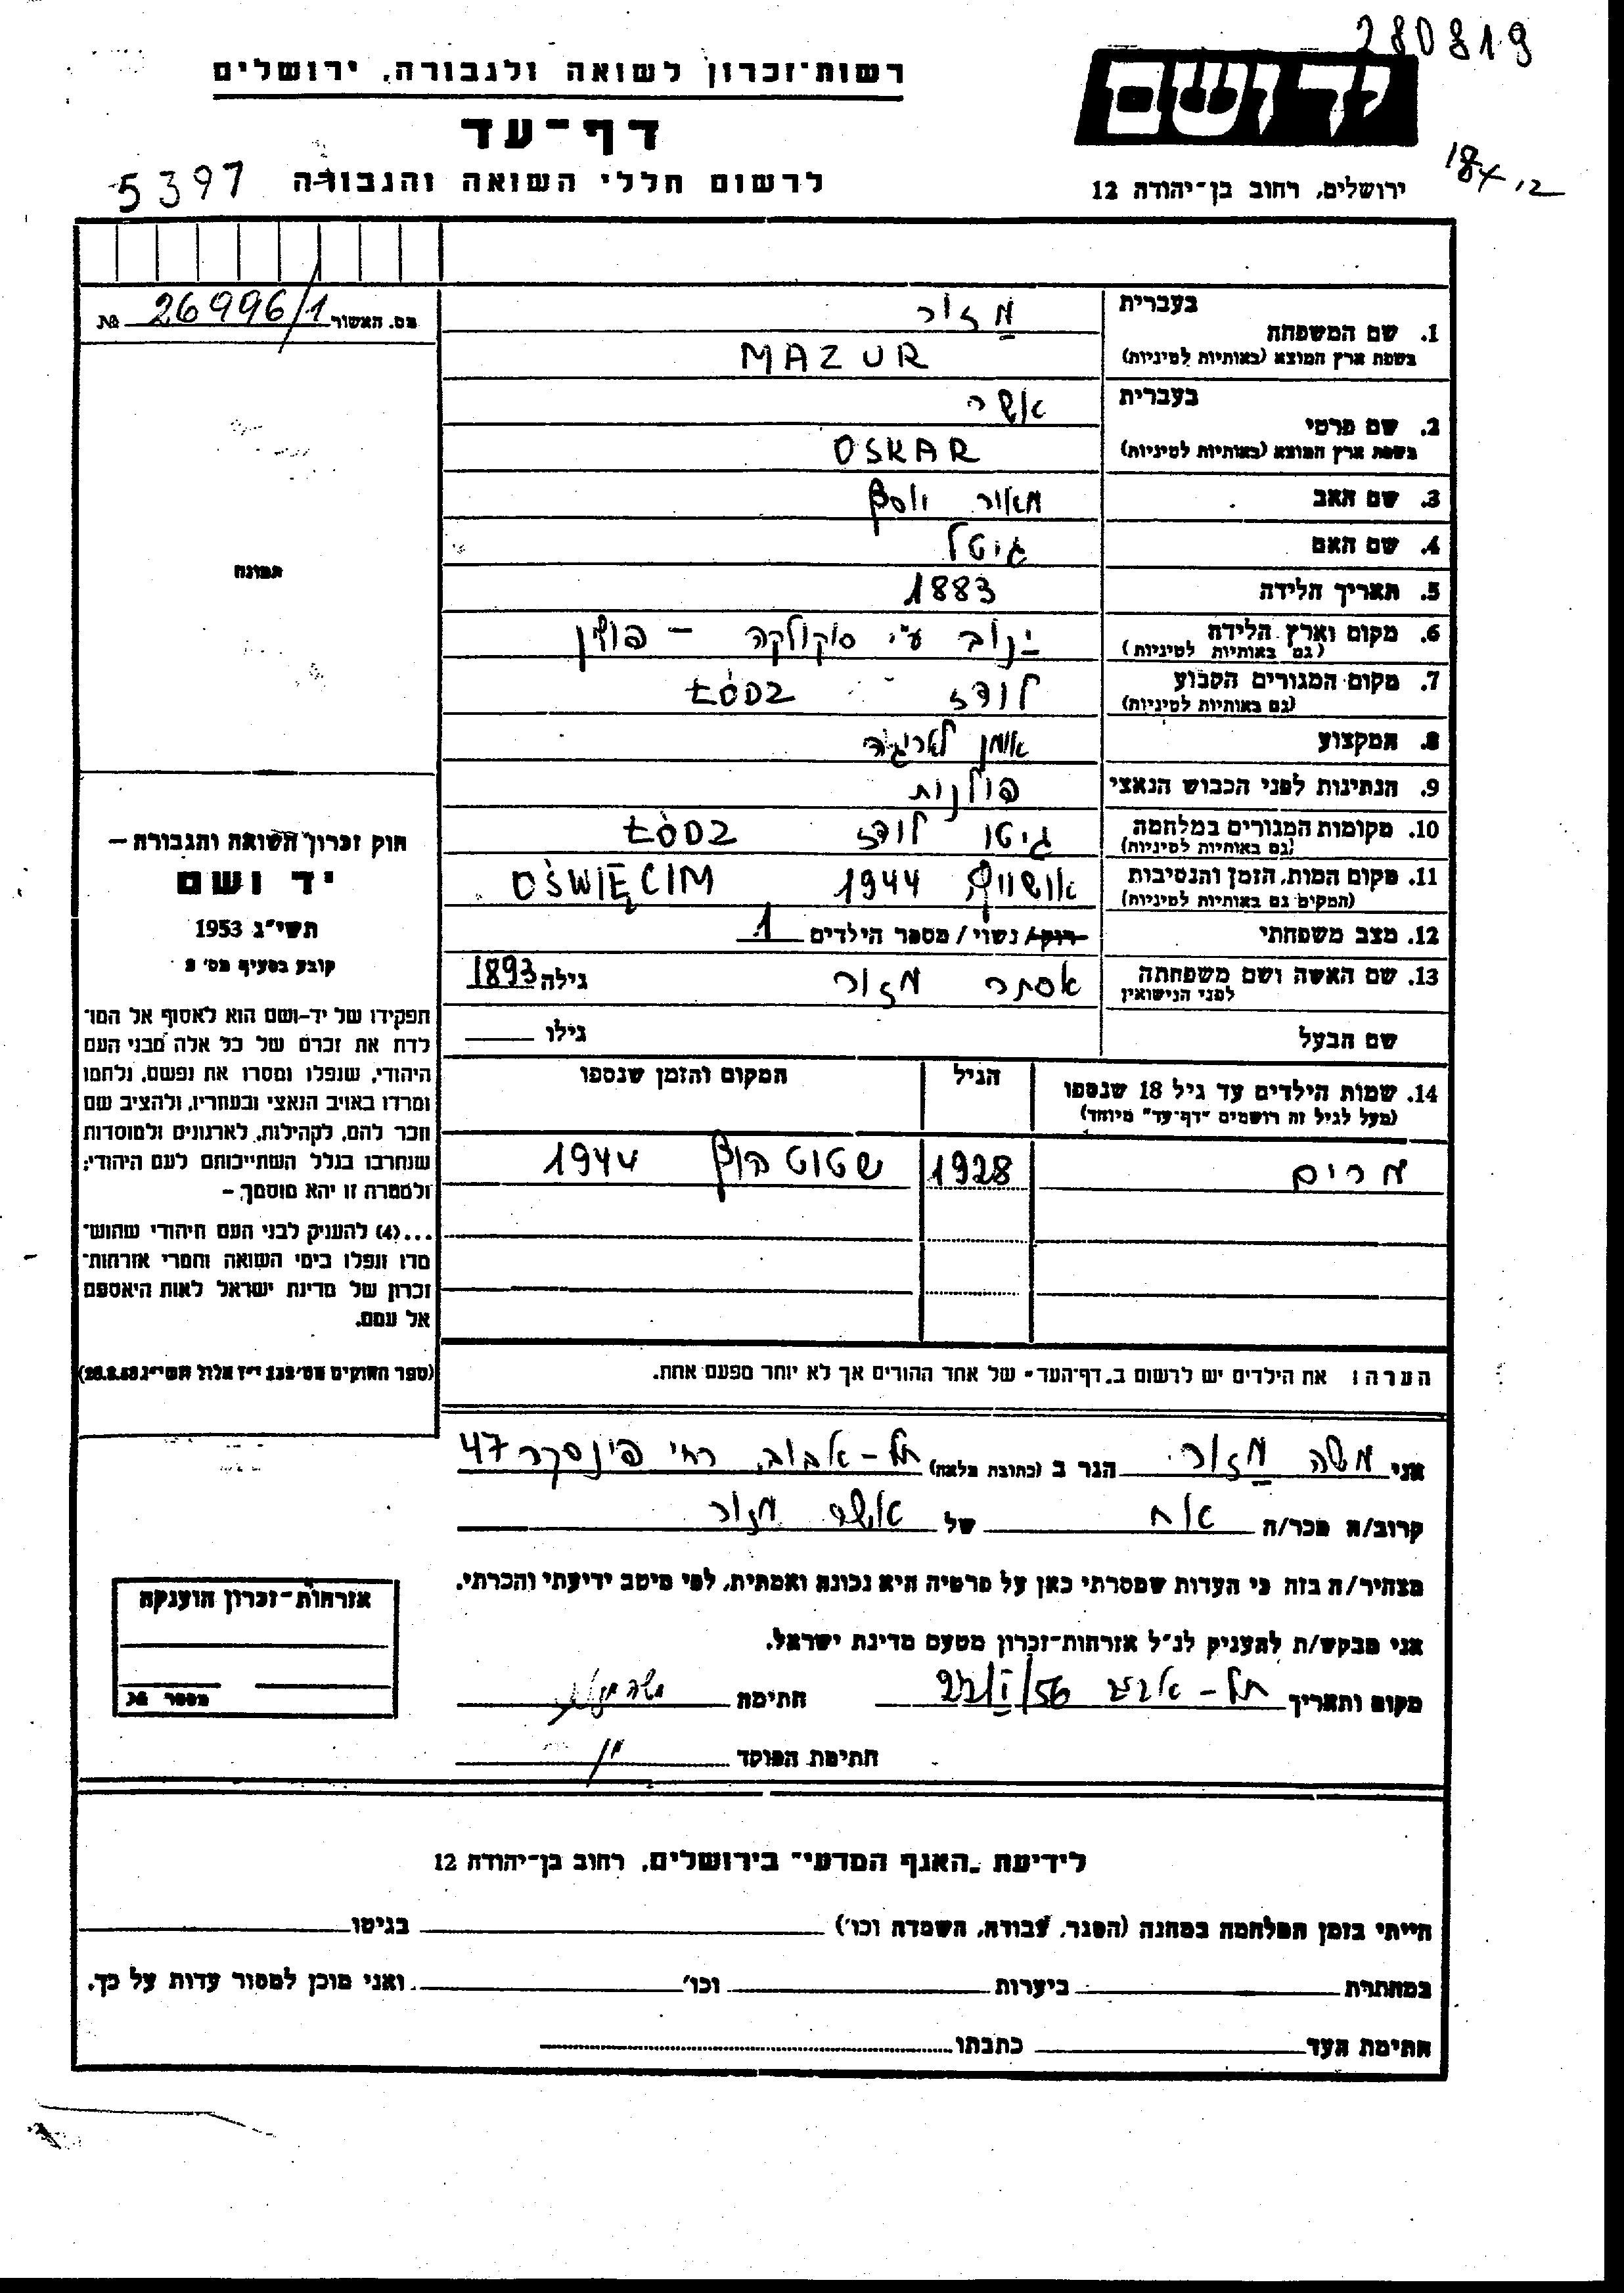 280819
רשות־זכרון לשואה ולגבורה, ירושלים
יד ושם
דף־עד
לרשום חללי השואה והגבורה
5397
ירושלים, רחוב בן־יהודה 12
מס. האשור 26996/1 №
בעברית
מזור
1. שם המשפחה
בשפת ארץ המוצא (באותיות לטיניות)
MAZUR
בעברית
אשר
2. שם פרטי
בשפת ארץ המוצא (באותיות לטיניות)
OSKAR
3. שם האב
מאור יוסף
4. שם האם
גיטל
5. תאריך הלידה
1883
6. מקום וארץ הלידה
(גם באותיות לטיניות)
ינוב ע"י סוקולקה – פולין
7. מקום המגורים הקבוע
(גם באותיות לטיניות)
לודז ŁÓDZ
8. המקצוע
אומן לאריגה
9. הנתינות לפני הכבוש הנאצי
פולנית
10. מקומות המגורים במלחמה
(גם באותיות לטיניות)
גיטו לודז ŁÓDZ
11. מקום המות, הזמן והנסיבות
(המקום גם באותיות לטיניות)
אושויץ 1944 OŚWIĘCIM
12. מצב משפחתי
רווק/ נשוי / מספר הילדים 1
13. שם האשה ושם משפחתה
לפני הנישואין
אסתר מזור גילה 1893
שם הבעל גילו
14. שמות הילדים עד גיל 18 שנספו
(מעל לגיל זה רושמים "דף־עד" מיוחד)
הגיל
המקום והזמן שנספו
מרים 1928 שטוטהוף 1944
הערה: את הילדים יש לרשום ב„דף־העד" של אחד ההורים אך לא יותר מפעם אחת.
תמונה
חוק זכרון השואה והגבורה –
יד ושם
תשי"ג 1953
קובע בסעיף מס' 2
תפקידו של יד־ושם הוא לאסוף אל המו־
לדת את זכרם של כל אלה מבני העם
היהודי, שנפלו ומסרו את נפשם, נלחמו
ומרדו באויב הנאצי ובעוזריו, ולהציב שם
וזכר להם, לקהילות, לארגונים ולמוסדות
שנחרבו בגלל השתייכותם לעם היהודי;
ולמטרה זו יהא מוסמך –
...(4) להעניק לבני העם היהודי שהוש־
מדו ונפלו בימי השואה והמרי אזרחות־
זכרון של מדינת ישראל לאות היאספם
אל עמם.
(ספר החוקים מס' 132 י"ז אלול תשי"ג 28.8.53)
אני משה מזור הגר ב (כתובת מלאה) תל–אביב, רחי פינסקר 47
קרוב/ה מכר/ה אח של אשר מזור
מצהיר/ה בזה כי העדות שמסרתי כאן על פרטיה היא נכונה ואמתית, לפי מיטב ידיעתי והכרתי.
אני מבקש/ת להעניק לנ"ל אזרחות־זכרון מטעם מדינת ישראל.
מקום ותאריך תל–אביב 22/I/56 חתימה
חתימת הפוקד
אזרחות־זכרון הוענקה
מספר №
לידיעת „האגף המדעי" בירושלים, רחוב בן־יהודה 12
הייתי בזמן המלחמה במחנה (הסגר, עבודה, השמדה וכו') בגיטו
במחתרת ביערות וכו' ואני מוכן למסור עדות על כך.
חתימת העד כתבתו